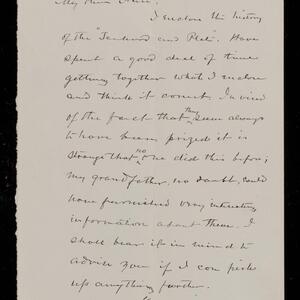 My dear
I enclose this history
of the "Tankard and Plate". Have
spent a good deal of time
getting together what I enclose
and think it correct. In view
of the fact that they seem always
to have been prized it is
strange that no one did this before;
my grandfather, no doubt, could
have furnished very interesting
information about them. I
shall bear it in mind to
advise you if I can pick
up anything further.